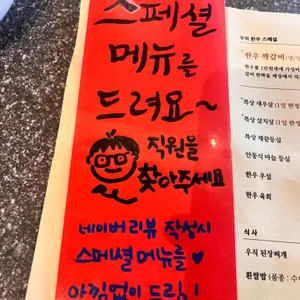 스페셜
메뉴를
드려요~
직원을
찾아주세요
네이버 리뷰 작성시
스메셜메뉴를♥
아낌없이 드림!
우직 한우 스페셜
한우 짝갈비
특상 새우살 (1일 한정
특상 살치살 (1일 한정
특상 채끝등심
안동식 마늘 등심
한우 우설
한우 육회
식사
우직 된장찌개
흰쌀밥 (품종 : 수